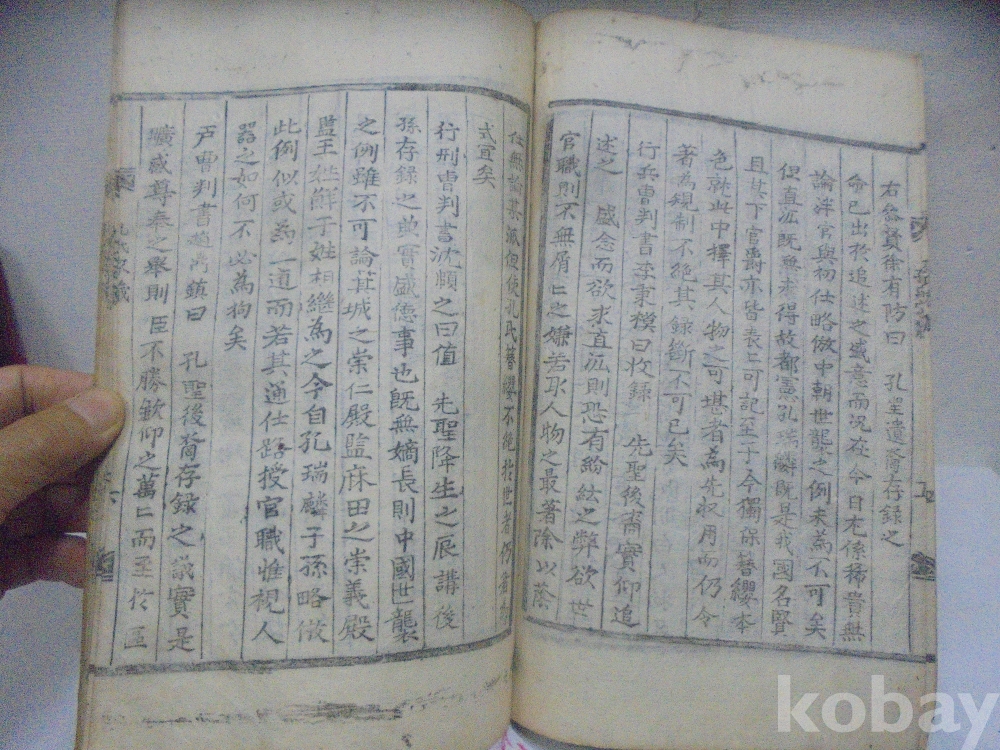 右參贊徐有防曰 孔聖遺裔存錄之
命已出於追述之盛意而況在今日尤係稀貴無
論泮官與初仕略倣中朝世襲之例未爲不可矣
但直派旣無考得故都憲孔瑞麟旣是我國名賢
且其下官爵亦皆表表可記至于今獨保簪纓本
色就此中擇其人物之可堪者爲先収用而仍令
著爲規制不絶其錄斷不可已矣
行兵曹判書李秉模曰收錄 先聖後裔實仰追
述之 盛念而欲求直派則恐有紛紜之弊欲世
官職則不無屑屑之嫌若取人物之最著除以蔭
仕無論某派但使孔氏簪纓不絶於世者仍著
式宜矣
行刑曹判書沈頤之曰値 先聖降生之辰講後
孫存錄之典實盛德事也旣無嫡長則中國世襲
之例雖不可論箕城之崇仁殿監麻田之崇義殿
監王姓鮮于姓相繼爲之今自孔瑞麟子孫略倣
此例似或爲一道而若其通仕路授官職惟視人
器之如何不必爲拘矣
戶曹判書趙尙鎭曰 孔聖後裔存錄之議實是
曠感尊奉之擧則臣不勝欽仰之萬万而至於區
kobay